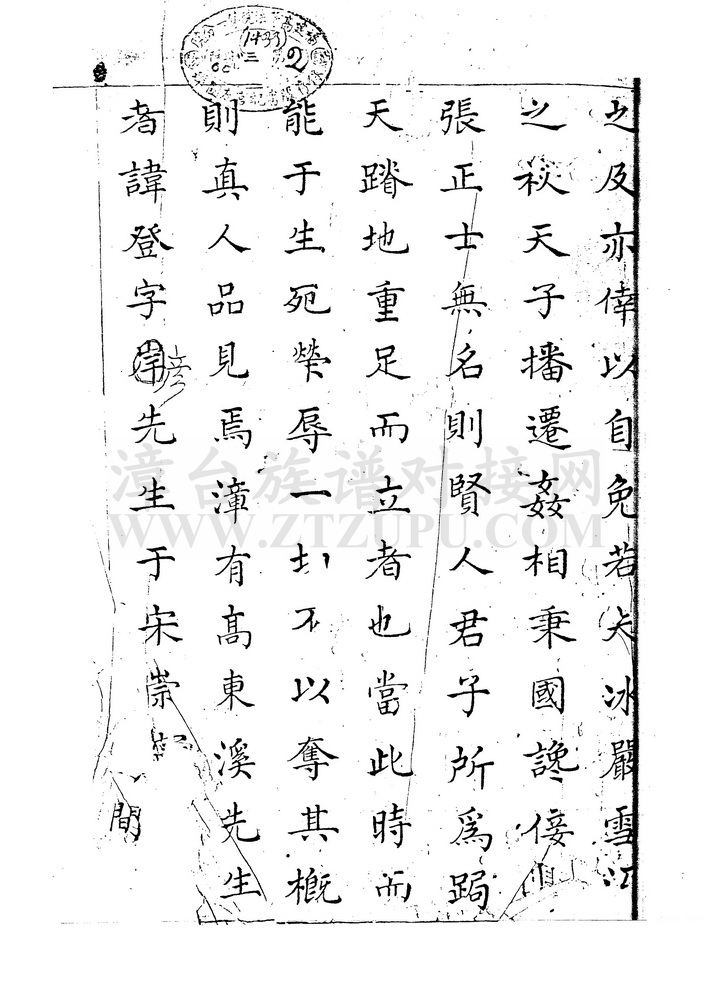 之及亦倖以自免若夫冰嚴雪江
之秋天子播遷姦相秉國讒佞
張正士無名則賢人君子所為跼
天蹐地重足而立者也當此時而
能于生死榮辱一切不以奪其概
則真人品見焉漳有高東溪先生
者諱登字彥先生于宋崇
間
漳台族谱对接网
WWW.ZTZUPU.COM
(1433)
三
2